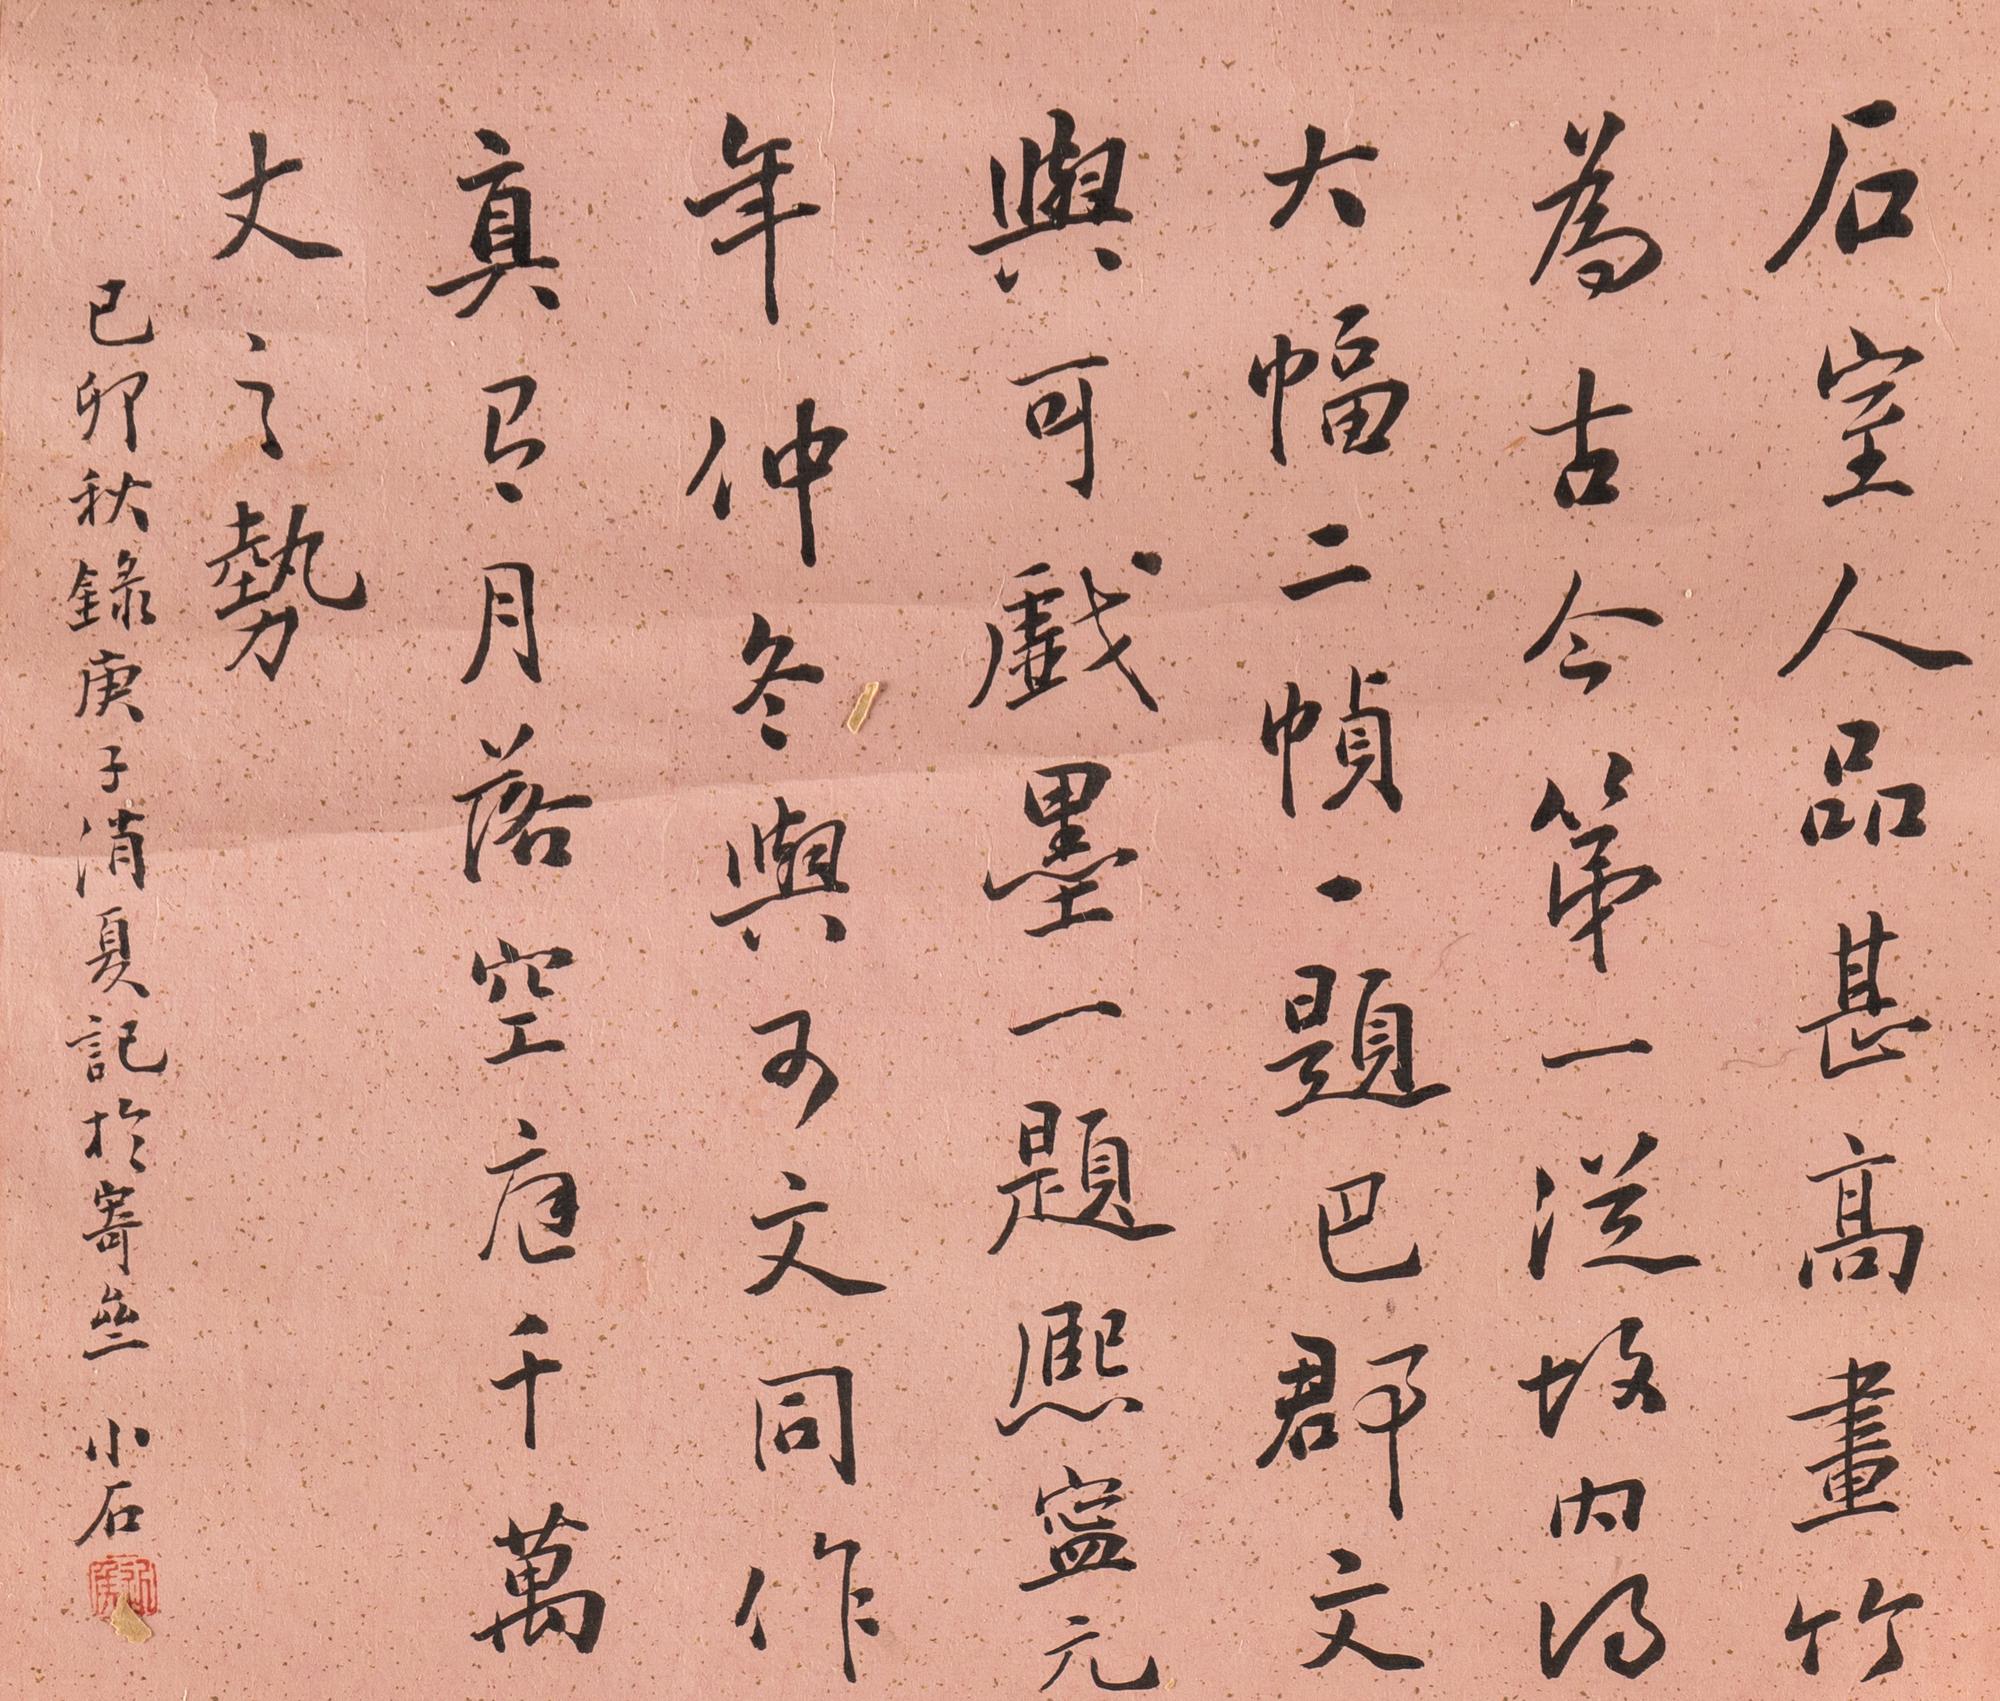 石室人品甚高畫竹
為古今第一從故内得
大幅二幀一題巴郡文
與可戲墨一題熙寧元
年仲冬與可文同作
真有月落空庭千萬
丈之勢
己卯秋錄庚子消夏記於寄 小石